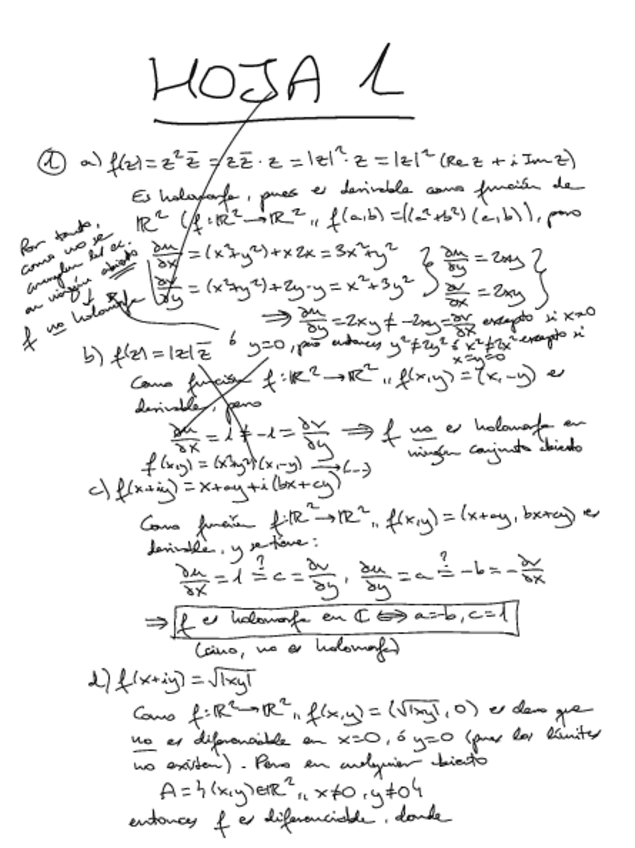 HOJA 1
① a) f(z) = z² z̄ = z z̄ · z = |z|² · z = |z|² (Re z + i Im z)
Es holomorfa, pues es derivable como función de
ℝ² (f: ℝ² → ℝ² ,, f(a,b) = ((a²+b²)(a,b)), pero
Por tanto,
como no se
cumplen las ec.
en ningún abierto
f no holomorfa
∂u/∂x = (x²+y²) + x2x = 3x²+y²
∂v/∂y = (x²+y²) + 2y·y = x²+3y²
∂u/∂y = 2xy
∂v/∂x = 2xy
⇒ ∂u/∂y = 2xy ≠ -2xy = ∂v/∂x excepto si x=0
ó y=0, pero entonces y² ≠ 2y² ó x² ≠ 2x² excepto si
x=y=0
b) f(z) = |z| z̄
Como función f: ℝ² → ℝ² ,, f(x,y) = (x,-y) es
derivable, pero
∂u/∂x = 1 ≠ -1 = ∂v/∂y ⇒ f no es holomorfa en
ningún conjunto abierto
f(x,y) = (x²+y²)(x,-y) → (...)
c) f(x+iy) = x+ay+i(bx+cy)
Como función f: ℝ² → ℝ² ,, f(x,y) = (x+ay, bx+cy) es
derivable, y se tiene:
∂u/∂x = 1 ≟ c = ∂v/∂y , ∂u/∂y = a ≟ -b = -∂v/∂x
⇒ f es holomorfa en ℂ ⟺ a=-b, c=1
(sino, no es holomorfa)
d) f(x+iy) = √|xy|
Como f: ℝ² → ℝ² ,, f(x,y) = (√|xy|, 0) es claro que
no es diferenciable en x=0, ó y=0 (pues los límites
no existen). Pero en cualquier abierto
A = {(x,y) ∈ ℝ² ,, x≠0, y≠0}
entonces f es diferenciable, donde